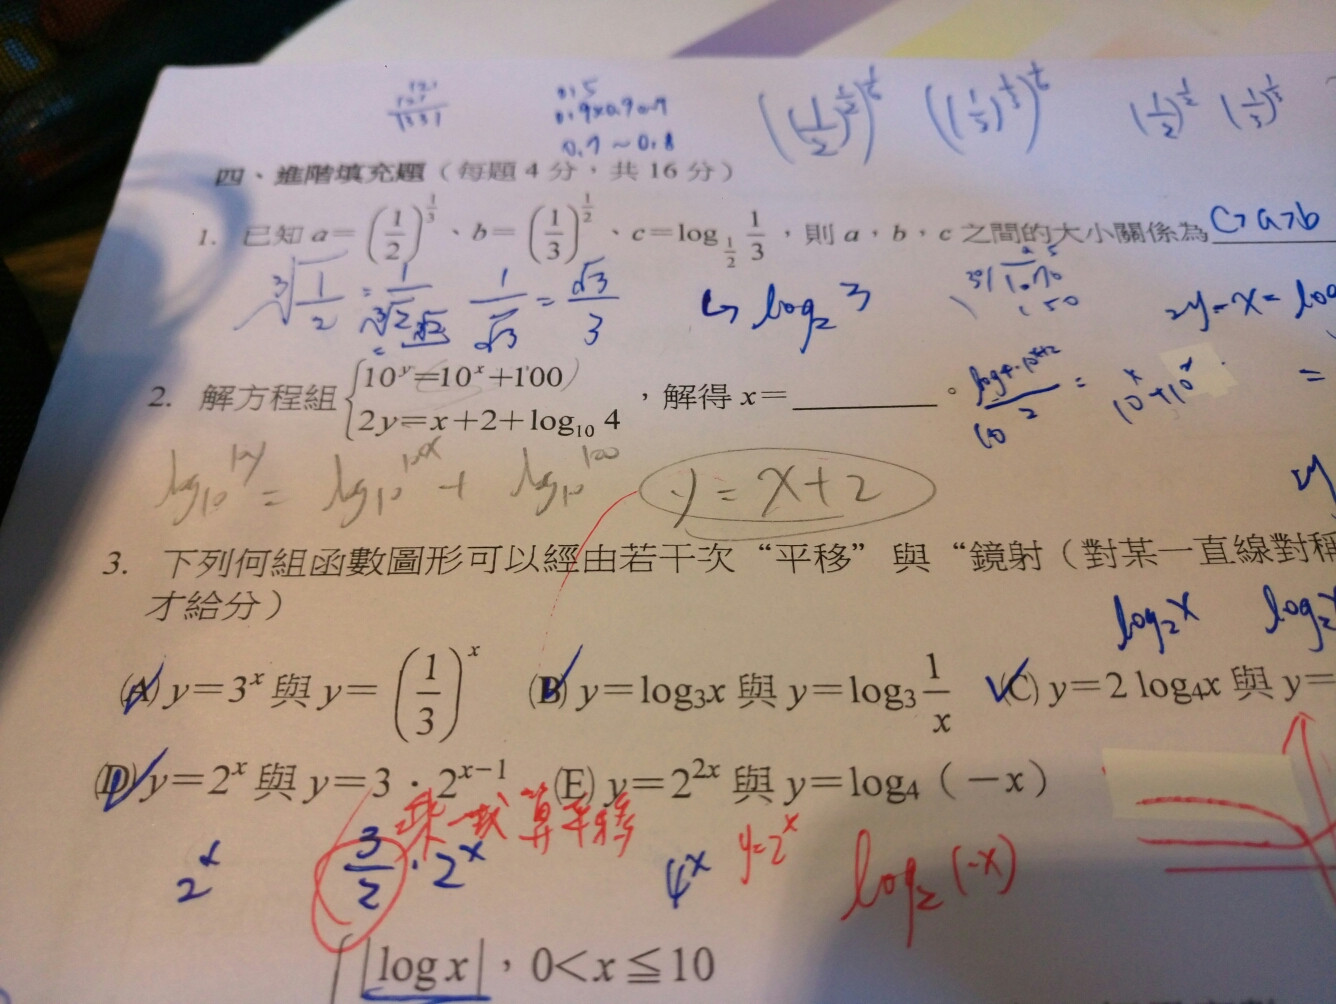 0.5
0.7~0.8
((1/2)^{1/2})^{1/6} ((1/3)^{1/3})^{1/6} (1/2)^{1/2} (1/3)^{1/3}
四、進階填充題(每題4分,共16分)
1. 已知 a=(1/2)^{1/3}、b=(1/3)^{1/2}、c=log_{1/2} 1/3,則 a,b,c 之間的大小關係為 c>a>b
1/√3 = √3/3
↳ log₂3
2y-x=log
2. 解方程組 { 10^y=10^x+100
2y=x+2+log₁₀4 ,解得 x=______。
10^x+10^2
log₁₀ 10^y = log₁₀ 10^x + log₁₀ 100
y=x+2
2y
3. 下列何組函數圖形可以經由若干次“平移”與“鏡射(對某一直線對稱
才給分)
log₂x log₂
(A) y=3^x 與 y=(1/3)^x (B) y=log₃x 與 y=log₃ 1/x (C) y=2 log₄x 與 y=
(D) y=2^x 與 y=3·2^{x-1} (E) y=2^{2x} 與 y=log₄(-x)
算平移
2^x 3/2·2^x 4^x y=2^x log₂(-x)
|log x|,0<x≦10